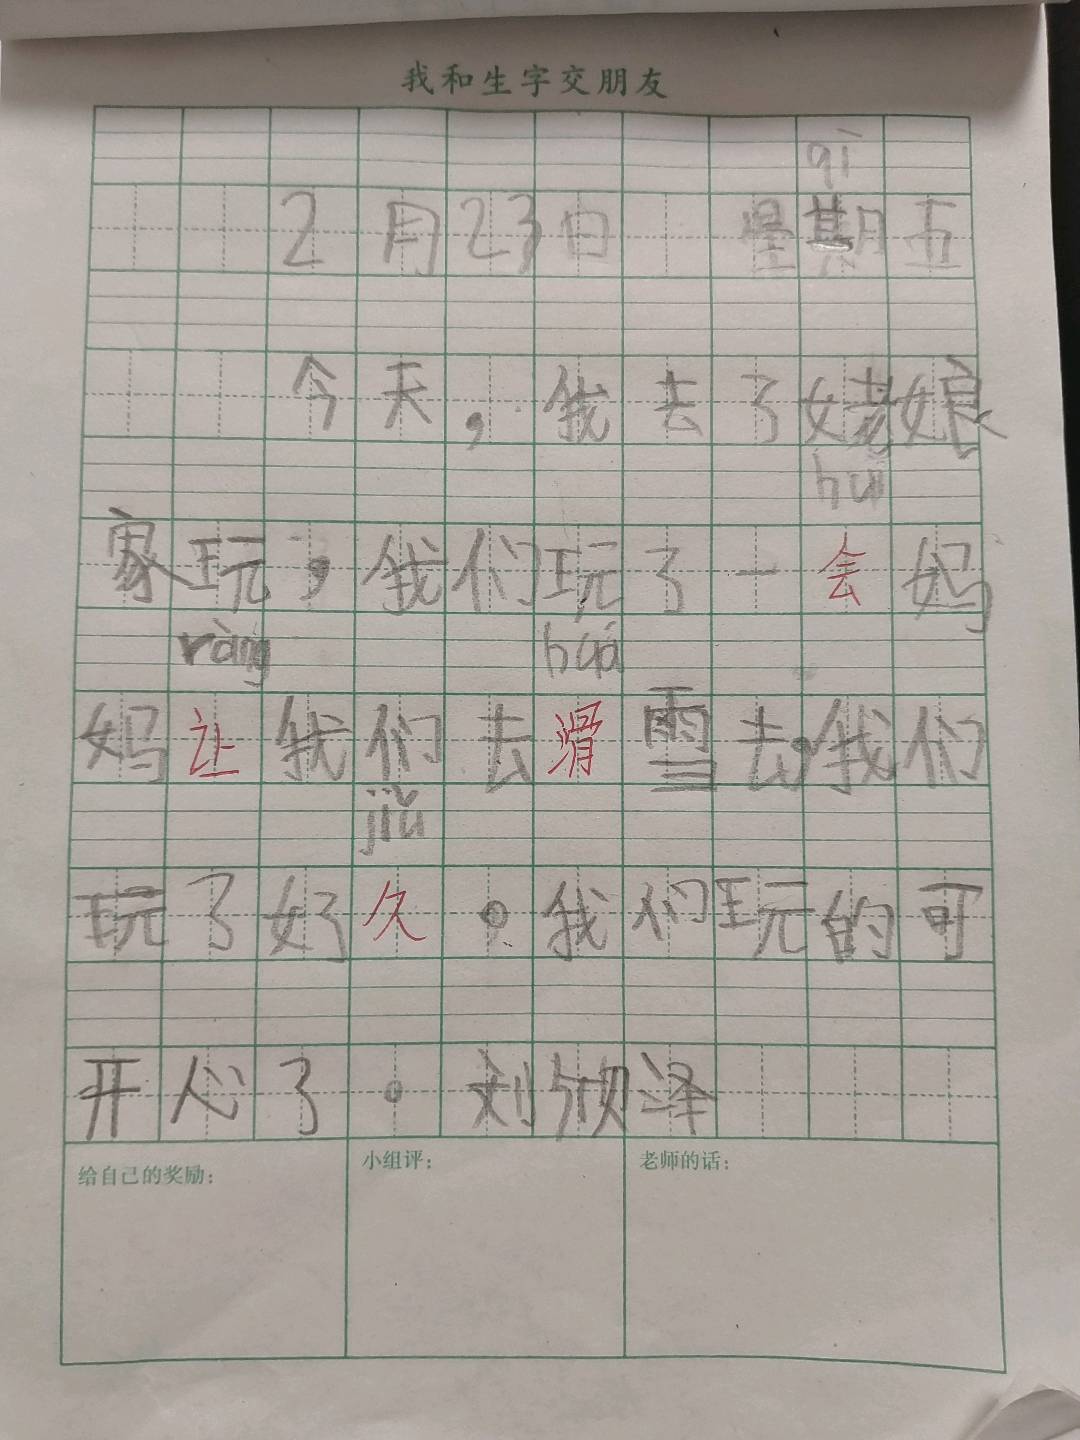 我和生字交朋友
qì
2月23日 星期五
今天，我去了姥娘
huì
家玩，我们玩了一会妈
ràng huá
妈让我们去滑雪去，我们
jiǔ
玩了好久。我们玩的可
开心了。刘欣泽
给自己的奖励： 小组评： 老师的话：